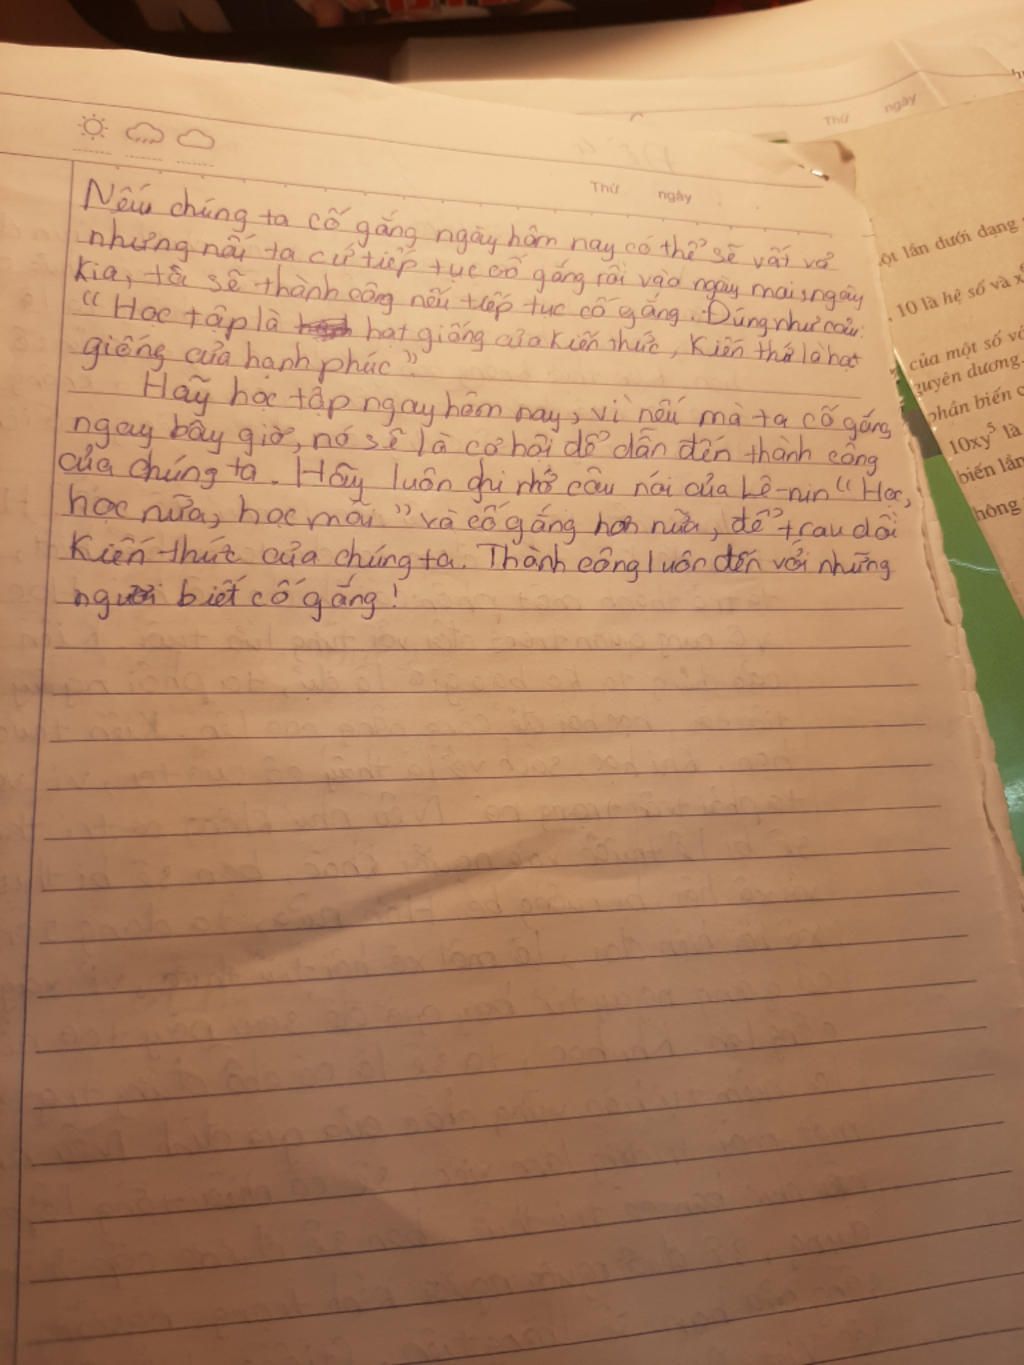 Thứ ngày
Thứ ngày
Nếu chúng ta cố gắng ngày hôm nay có thể sẽ vất vả
nhưng nếu ta cứ tiếp tục cố gắng rồi vào ngày mai, ngày
kia, ta sẽ thành công nếu tiếp tục cố gắng. Đúng như câu:
"Học tập là hạt giống của kiến thức, kiến thứ là hạt
giống của hạnh phúc"
Hãy học tập ngay hôm nay, vì nếu mà ta cố gắng
ngay bây giờ, nó sẽ là cơ hội để dẫn đến thành công
của chúng ta. Hãy luôn ghi nhớ câu nói của Lê-nin "Học,
học nữa, học mãi" và cố gắng hơn nữa, để trau dồi
kiến thức của chúng ta. Thành công luôn đến với những
người biết cố gắng!
ột lần dưới dạng
, 10 là hệ số và x
của một số với
guyên dương.
phần biến c
10xy⁵ là
biến lần
hông